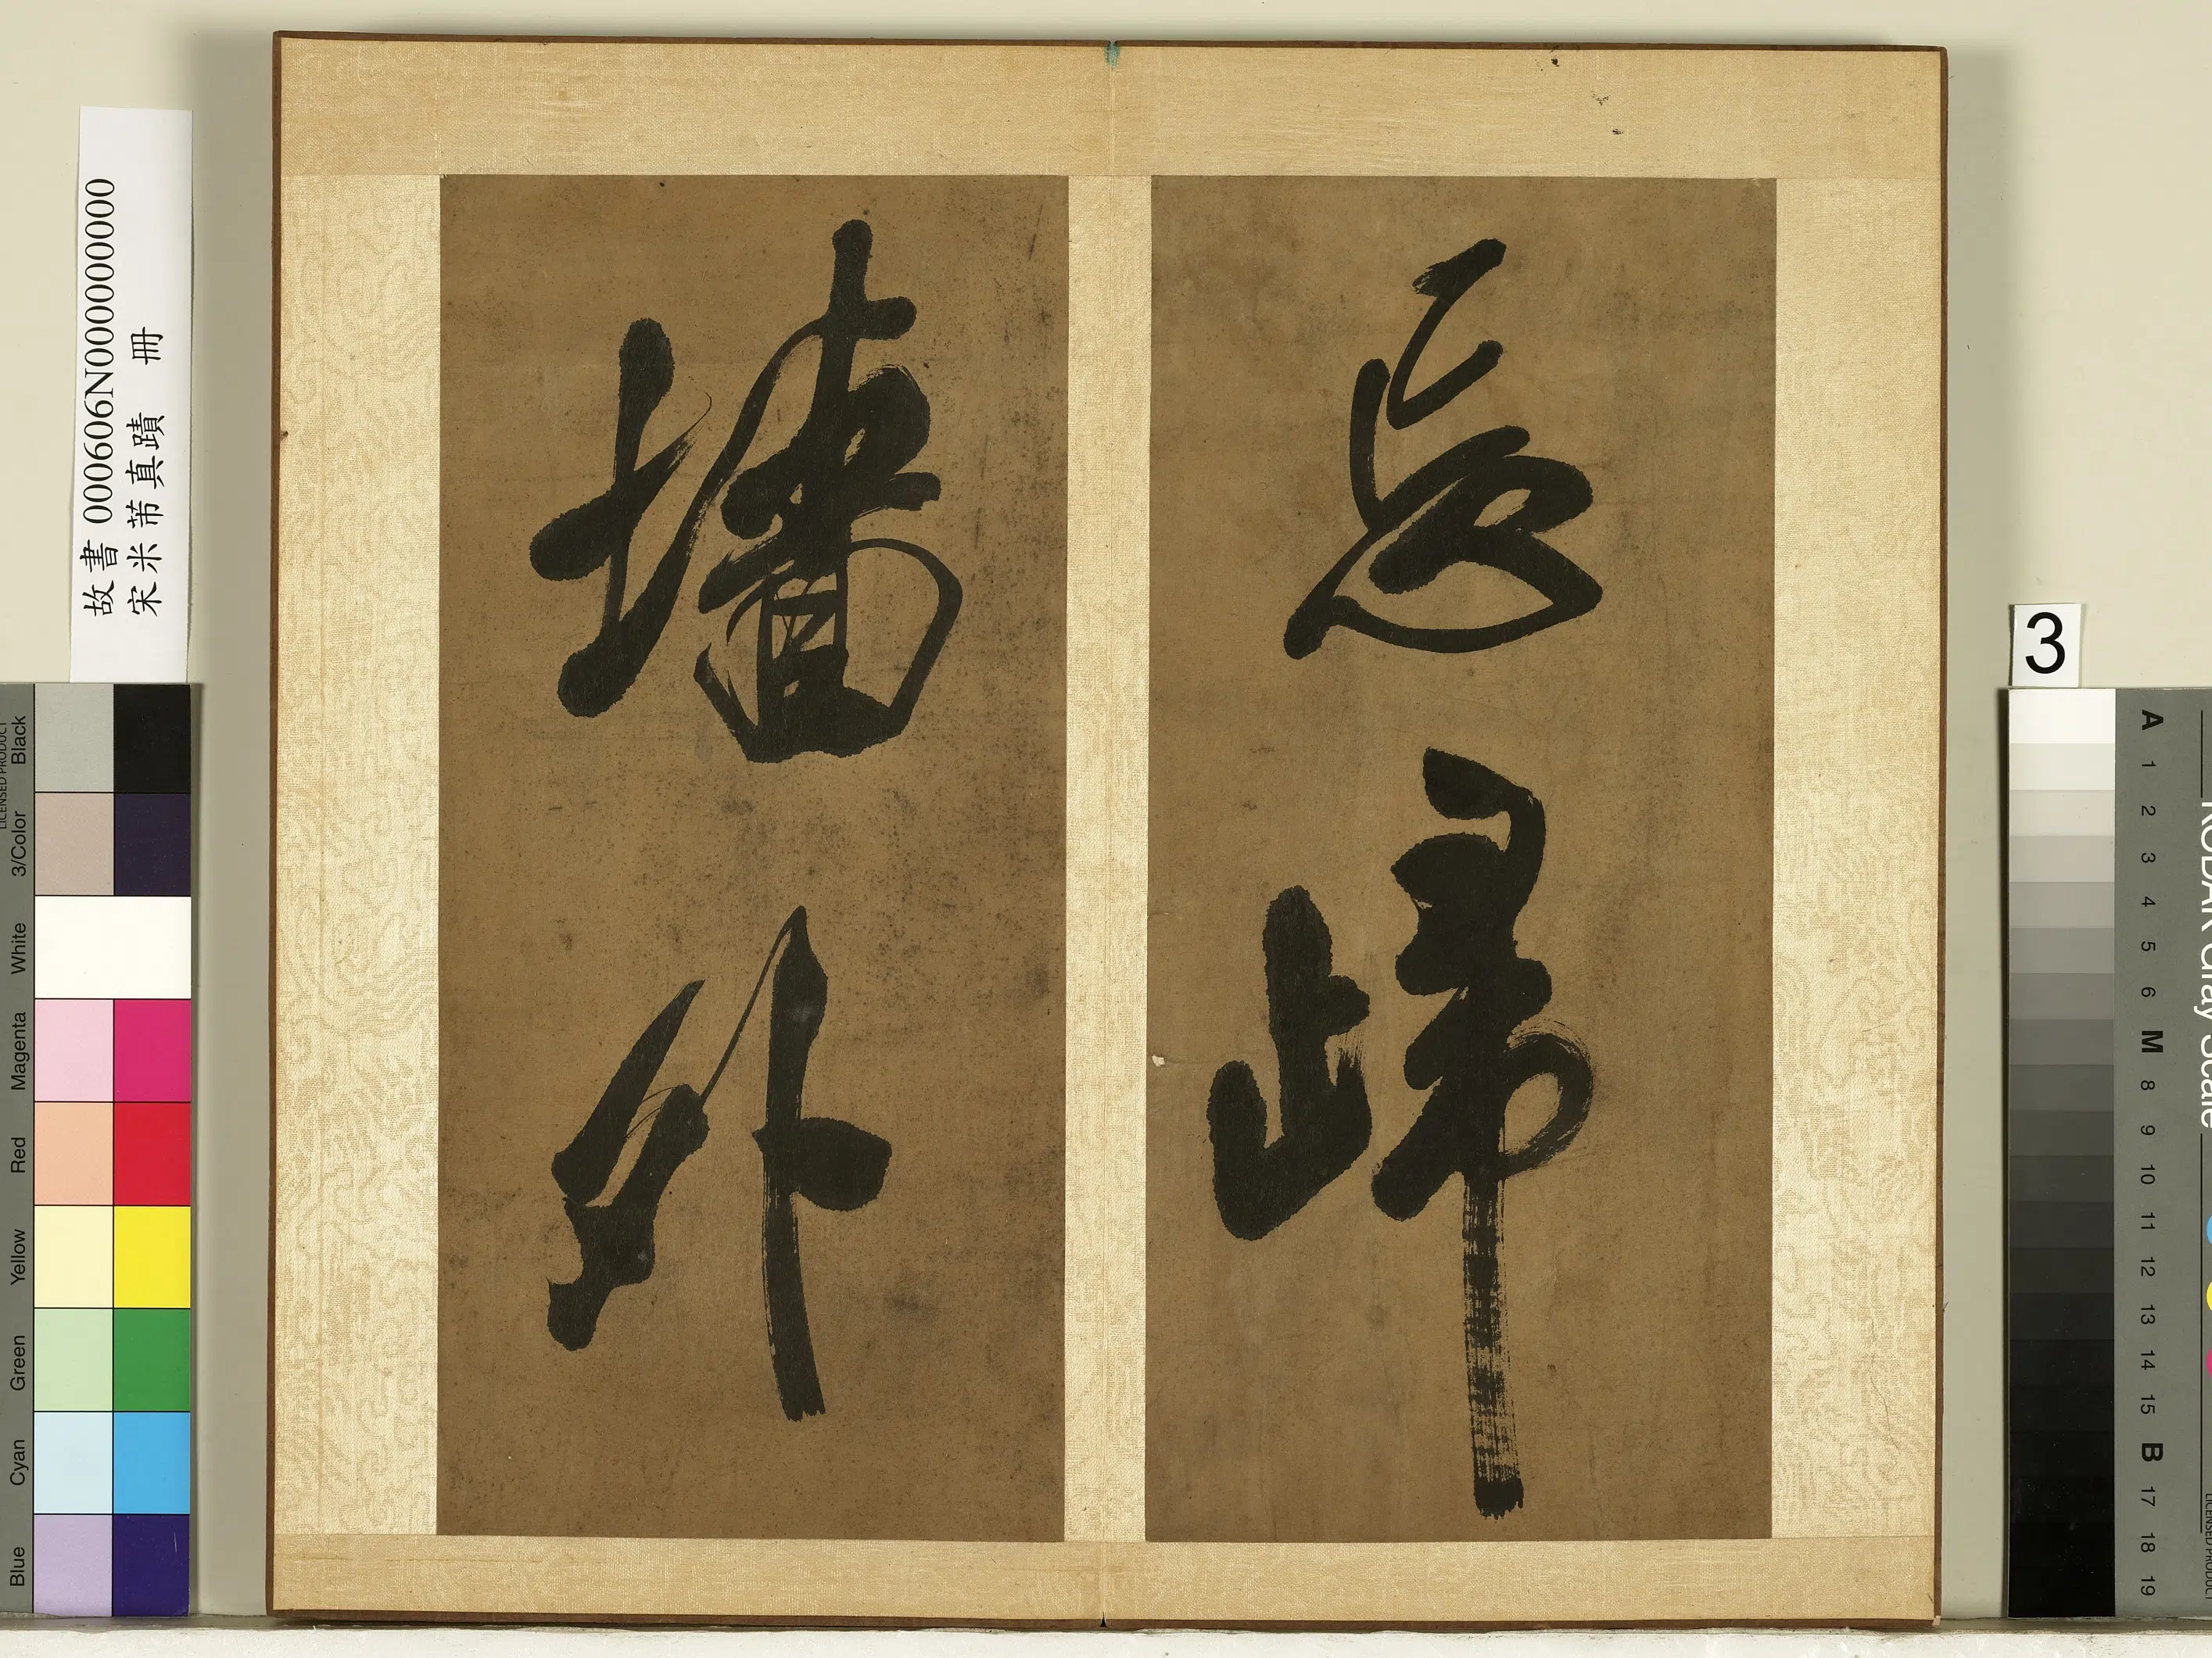 忘歸
墻外
故書 000606N000000000
宋米芾真蹟 冊
3
Black
3/Color
White
Magenta
Red
Yellow
Green
Cyan
Blue
LICENSED PRODUCT
A
1
2
3
4
5
6
M
8
9
10
11
12
13
14
15
B
17
18
19
KODAK Gray Scale
LICENSED PRODUCT